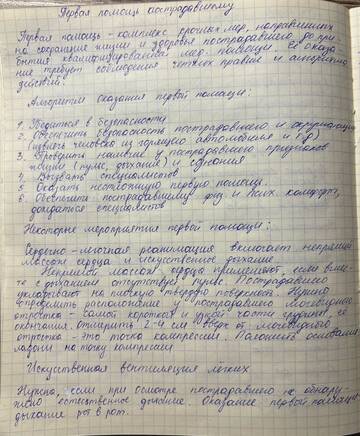 Первая помощь пострадавшему
Первая помощь - комплекс срочных мер, направленных
на сохранение жизни и здоровья пострадавшего до при-
бытия квалифицированной мед. помощи. Её оказа-
ние требует соблюдения четких правил и алгоритма
действий.
Алгоритм оказания первой помощи:
1. Убедиться в безопасности
2. Обеспечить безопасность пострадавшего и окружающих
(вывезти человека из горящего автомобиля и др)
3. Проверить наличие у пострадавшего признаков
жизни (пульс, дыхание) и сознания
4. Вызвать специалистов
5. Оказать неотложную первую помощь.
6. Обеспечить пострадавшему физ и псих. комфорт,
дождаться специалистов
Некоторые мероприятия первой помощи:
Сердечно-легочная реанимация включает непрямой
массаж сердца и искусственное дыхание
Непрямой массаж сердца применяют, если вмес-
те с дыханием отсутствует пульс. Пострадавшего
укладывают на плоскую твердую поверхность. Нужно
определить расположение у пострадавшего мечевидного
отростка - самой короткой и узкой части грудины, её
окончания. Отмерить 2-4 см вверх от мечевидного
отростка - это точка компрессии. Положить основание
ладони на точку компрессии
Искусственная вентиляция легких
Нужна, если при осмотре пострадавшего не обнару-
жено естественное дыхание. Оказание первой помощи
дыхания рот в рот.